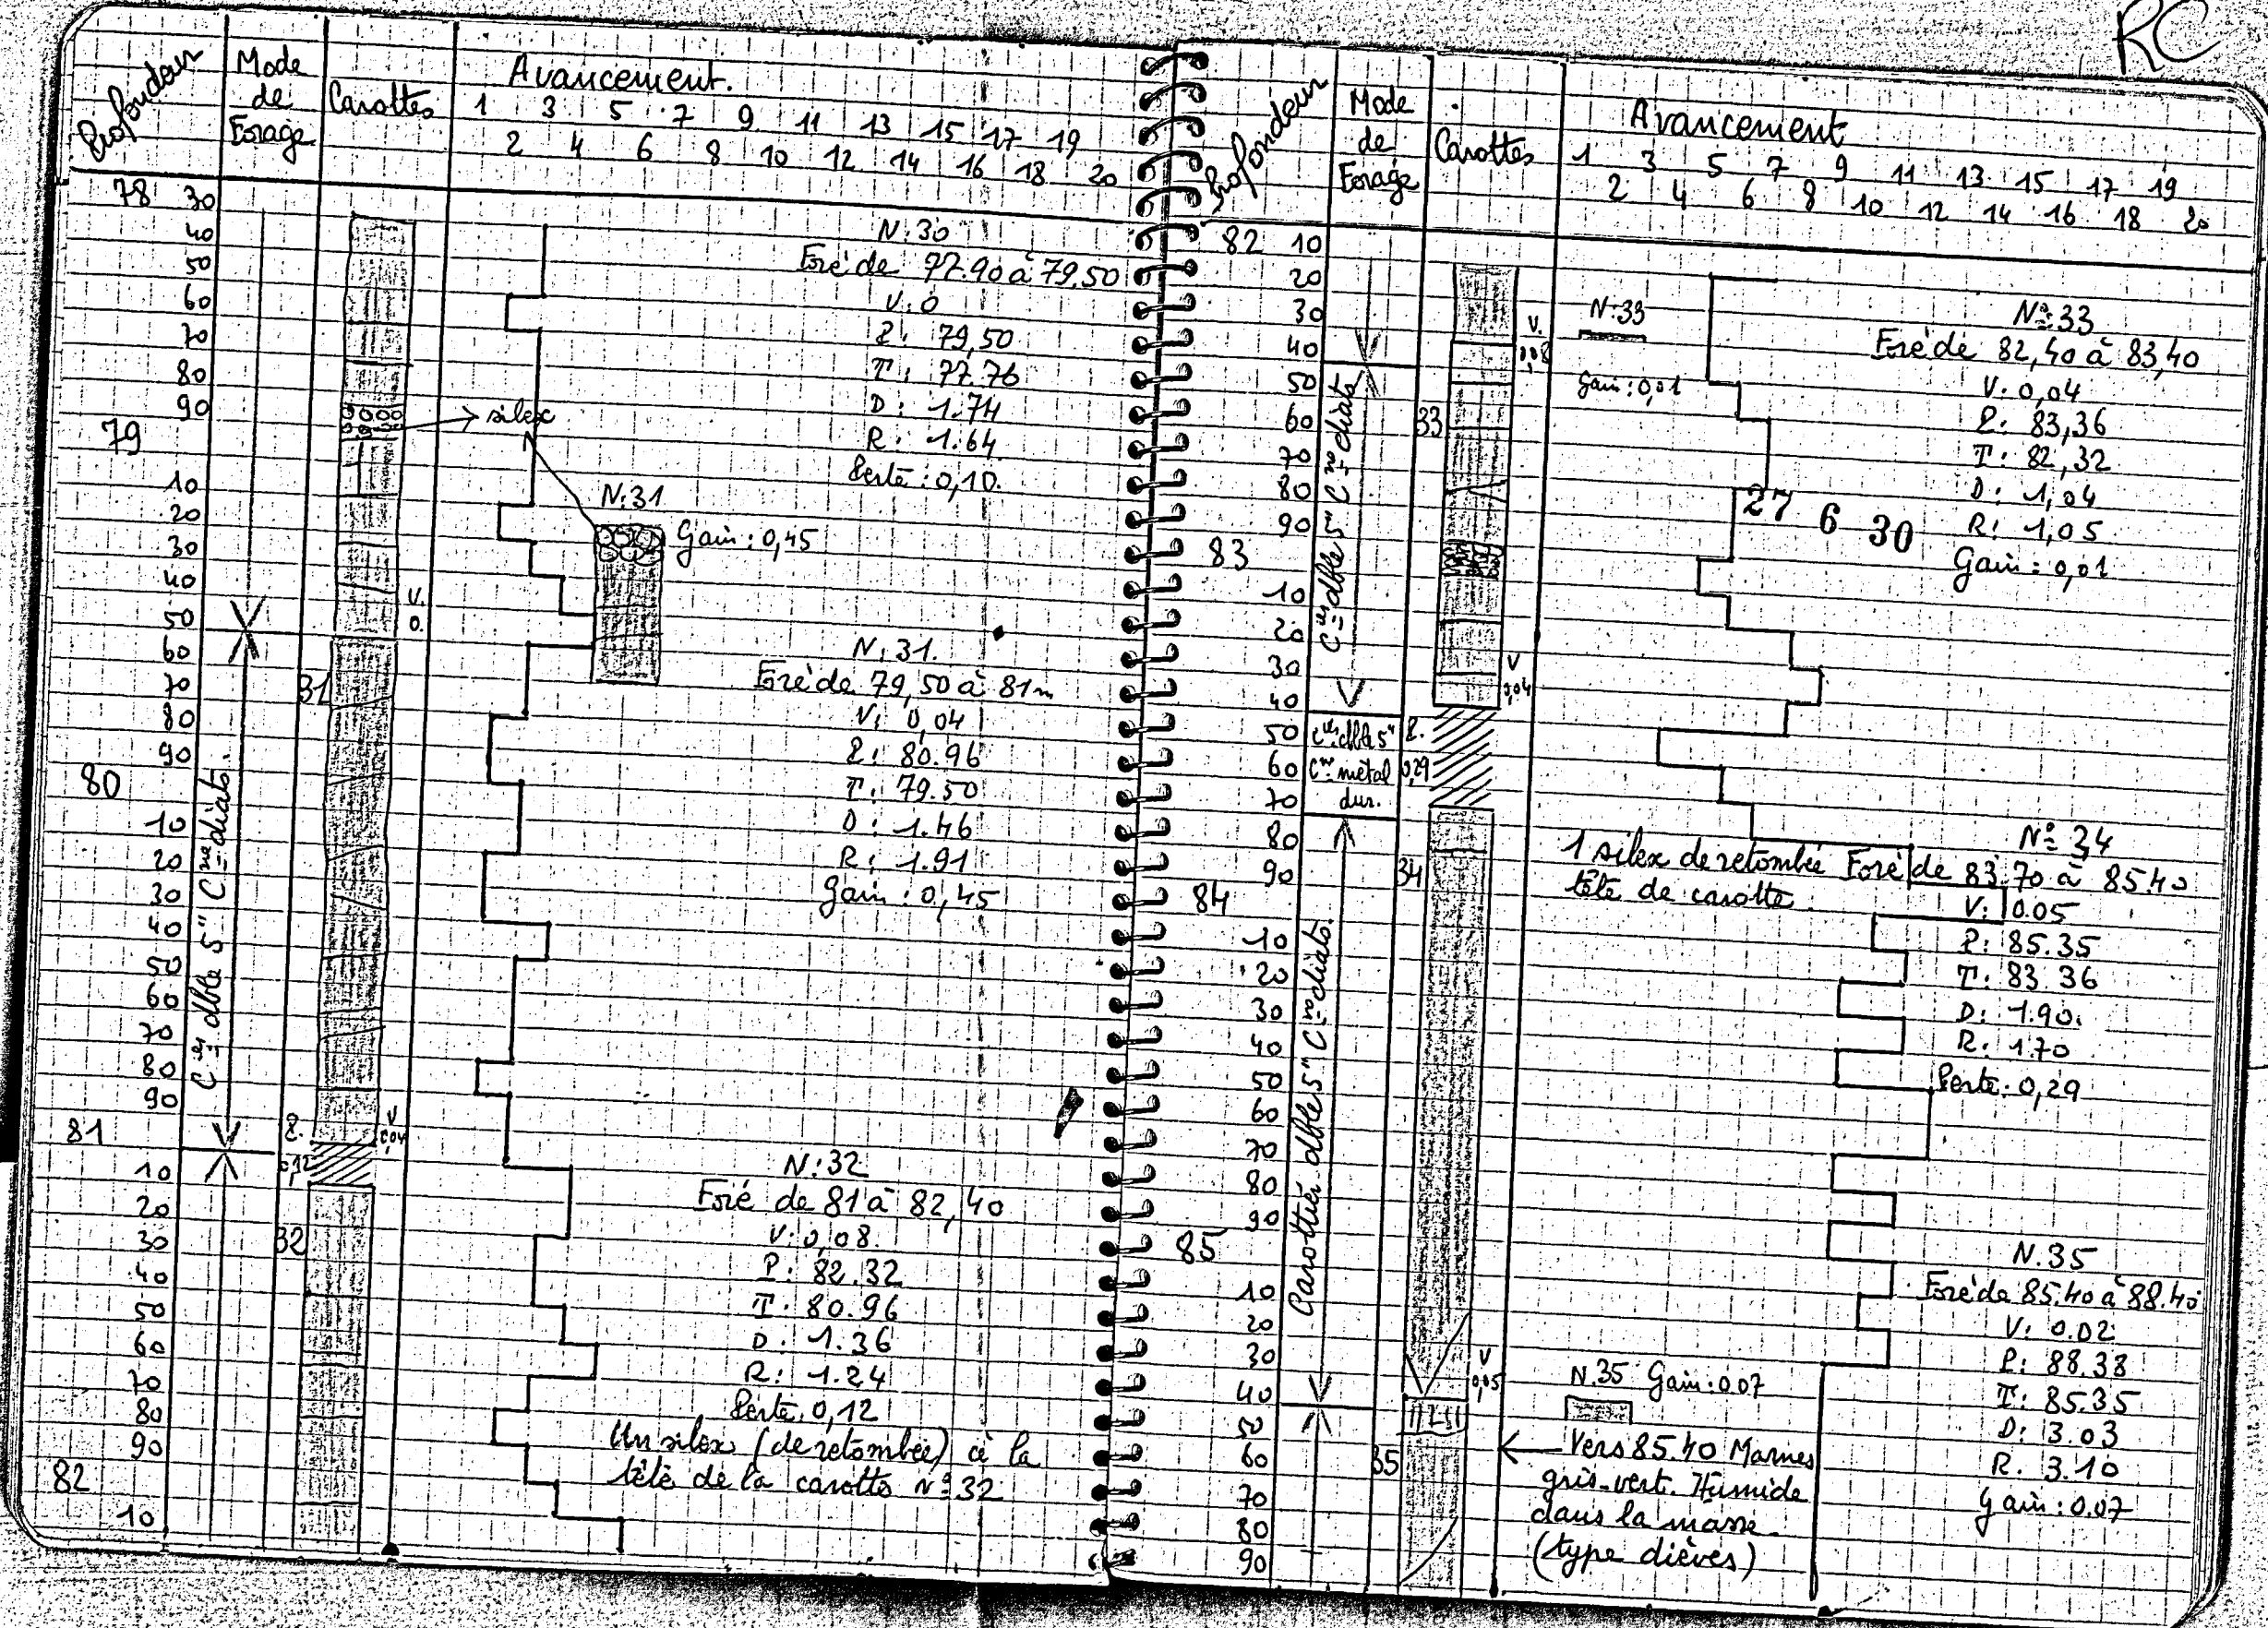 RC
Profondeur
Mode de Forage
Carottes
Avancement.
1 3 5 7 9 11 13 15 17 19
2 4 6 8 10 12 14 16 18 20
78 30
40
50
60
70
80
90
79
10
20
30
40
50
60
70
80
90
80
10
20
30
40
50
60
70
80
90
81
10
20
30
40
50
60
70
80
90
82
10
dble 5" diats.
31
32
V. 0.
V 0,04
P. 0,12
silex
N: 30
Foré de 77.90 à 79.50
V: 0
P: 79,50
T: 77.76
D: 1.74
R: 1.64
Perte: 0,10.
N: 31
Gain: 0,45
N: 31.
Foré de 79,50 à 81m
V: 0,04
P: 80.96
T: 79.50
D: 1.46
R: 1.91
Gain: 0,45
N: 32
Foré de 81 à 82,40
V: 0,08.
P: 82.32
T: 80.96
D: 1.36
R: 1.24
Perte. 0,12
Un silex (de retombée) à la
tête de la carotte N° 32
Profondeur
Mode de Forage
Carottes
Avancement
1 3 5 7 9 11 13 15 17 19
2 4 6 8 10 12 14 16 18 20
82 10
20
30
40
50
60
70
80
90
83
10
20
30
40
50
60
70
80
90
84
10
20
30
40
50
60
70
80
90
85
10
20
30
40
50
60
70
80
90
dble 5" diats
dble 5"
métal
dur.
Carottier dble 5" diats.
33
34
35
V. 0,08
V 0,04
P. 0,29
V 0,05
N: 33
Gain: 0,01
N° 33
Foré de 82,40 à 83,40
V. 0,04
P: 83,36
T: 82,32
D: 1,04
R: 1,05
Gain: 0,01
27 6 30
1 silex de retombée
tête de carotte.
N° 34
Foré de 83.70 à 85.40
V: 0.05
P: 85.35
T: 83.36
D: 1.90.
R: 1.70
Perte: 0,29
N. 35
Foré de 85.40 à 88.40
V: 0.02
P: 88.38
T: 85.35
D: 3.03
R. 3.10
Gain: 0.07
N. 35 Gain: 0.07
Vers 85.40 Marnes
gris-vert. Humide
dans la masse.
(type dièves)